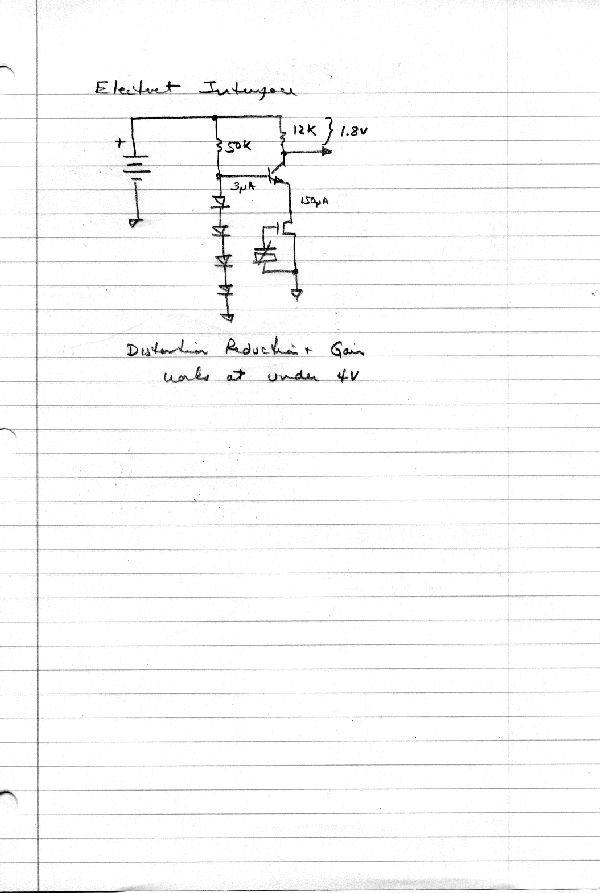 Electret Interface
+ 50K 12K } 1.8V
3µA 150µA
Distortion Reduction + Gain
works at under 4V